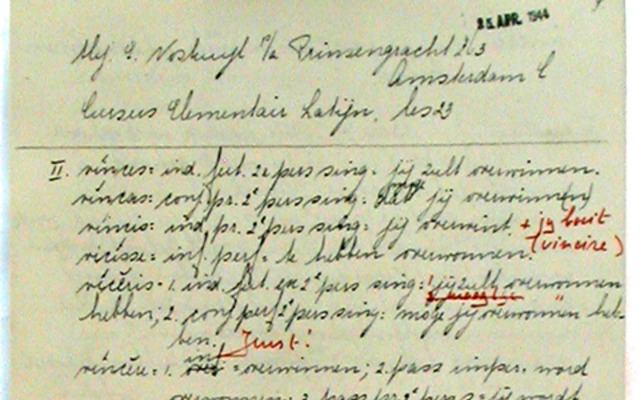 25 APR. 1944
Mej. E. Voskuyl p/a Prinsengracht 263
Amsterdam C
Cursus Elementair Latijn, les 23
II. vinces = ind. fut. 2e pers sing = jij zult overwinnen.
vincas: conj. pr. 2e pers sing: dat jij overwin(n)
vincis: ind. pr. 2e pers sing: jij overwint. + jy boeit
(vincire)
vicisse = inf. perf = te hebben overwonnen.
viceris = 1. ind. fut. ex 2e pers sing: jij zult overwonnen
hebben; 2. conj perf 2e pers sing: moge jij overwonnen heb-
ben. Juist!
inf
vincere = 1. = overwinnen; 2. pass imper = word
overwonnen; 3. pass pr. 2e pers = jij wordt